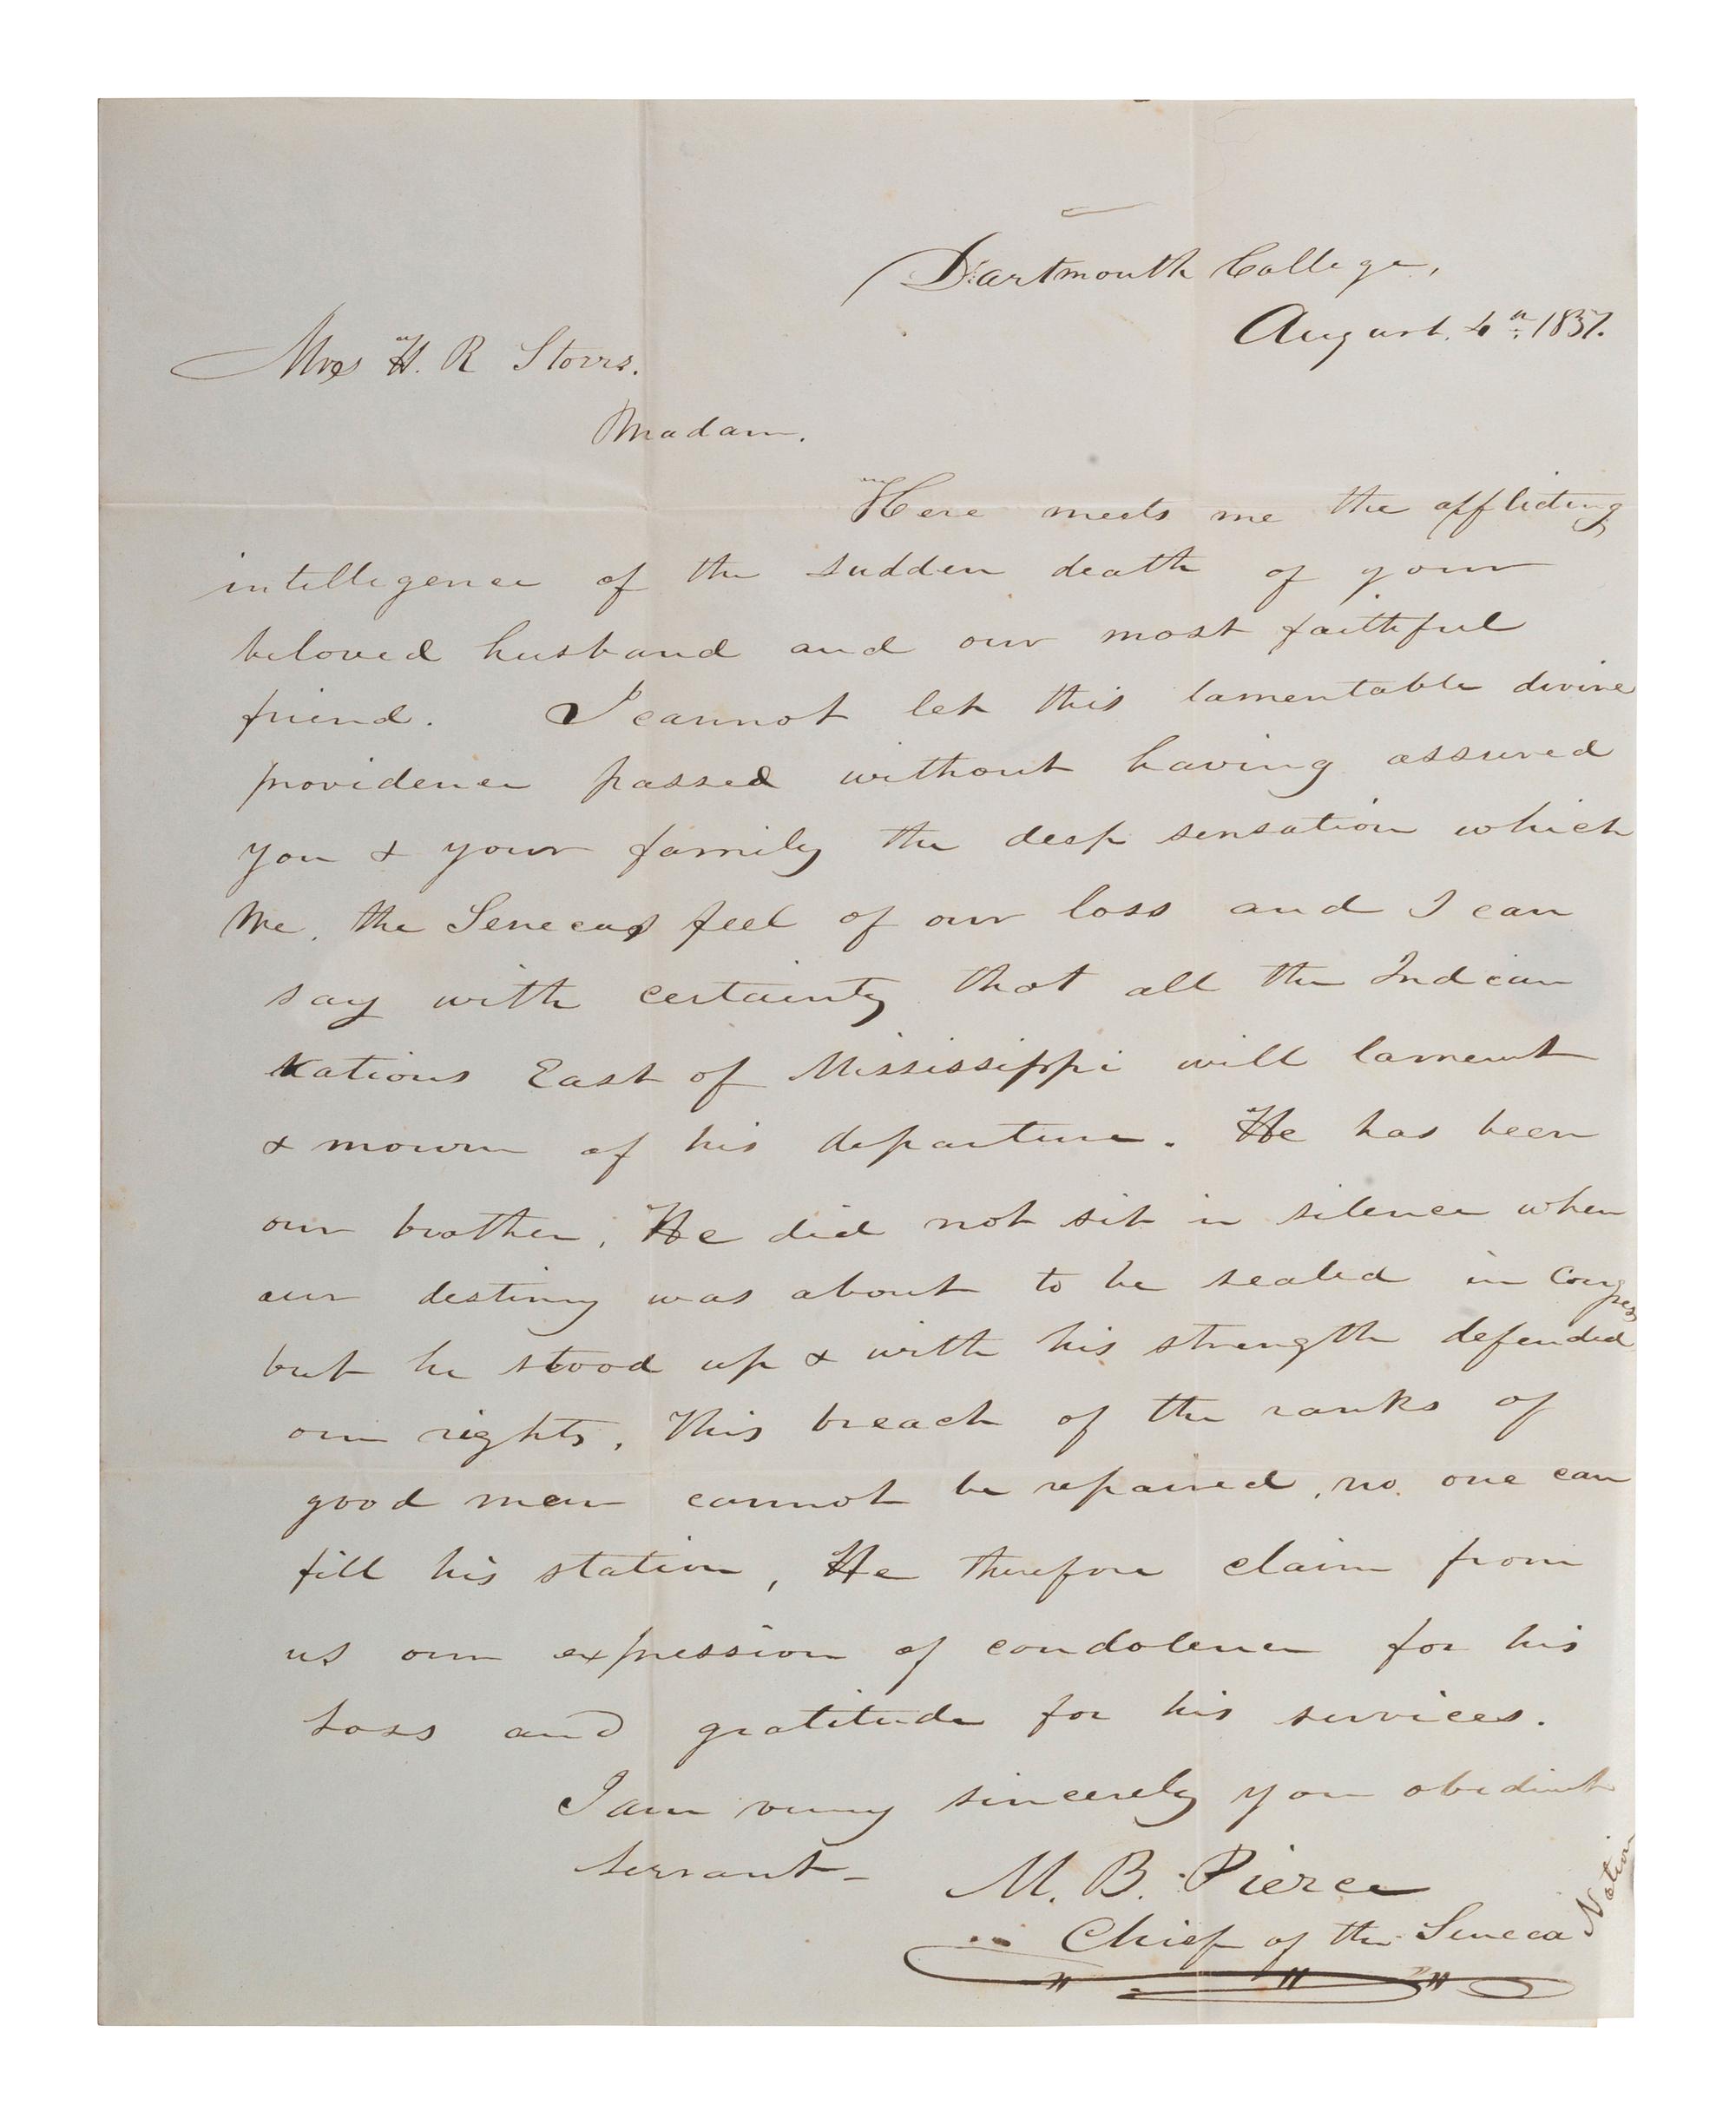 Dartmouth College,
August. 4th. 1837.
Mrs H. R Storrs.
Madam.
Here meets me the afflicting
intelligence of the sudden death of your
beloved husband and our most faithful
friend. I cannot let this lamentable divine
providence passed without having assured
you & your family the deep sensation which
we, the Senecas feel of our loss and I can
say with certainty that all the Indian
Nations East of Mississippi will lament
& mourn of his departure. He has been
our brother, He did not sit in silence when
our destiny was about to be sealed in Congress
but he stood up & with his strength defended
our rights. This breach of the ranks of
good men cannot be repaired, no one can
fill his station, He therefore claim from
us our expression of condolence for his
loss and gratitude for his services.
I am very sincerely your obedient
servant-
M. B. Pierce
Chief of the Seneca Nation